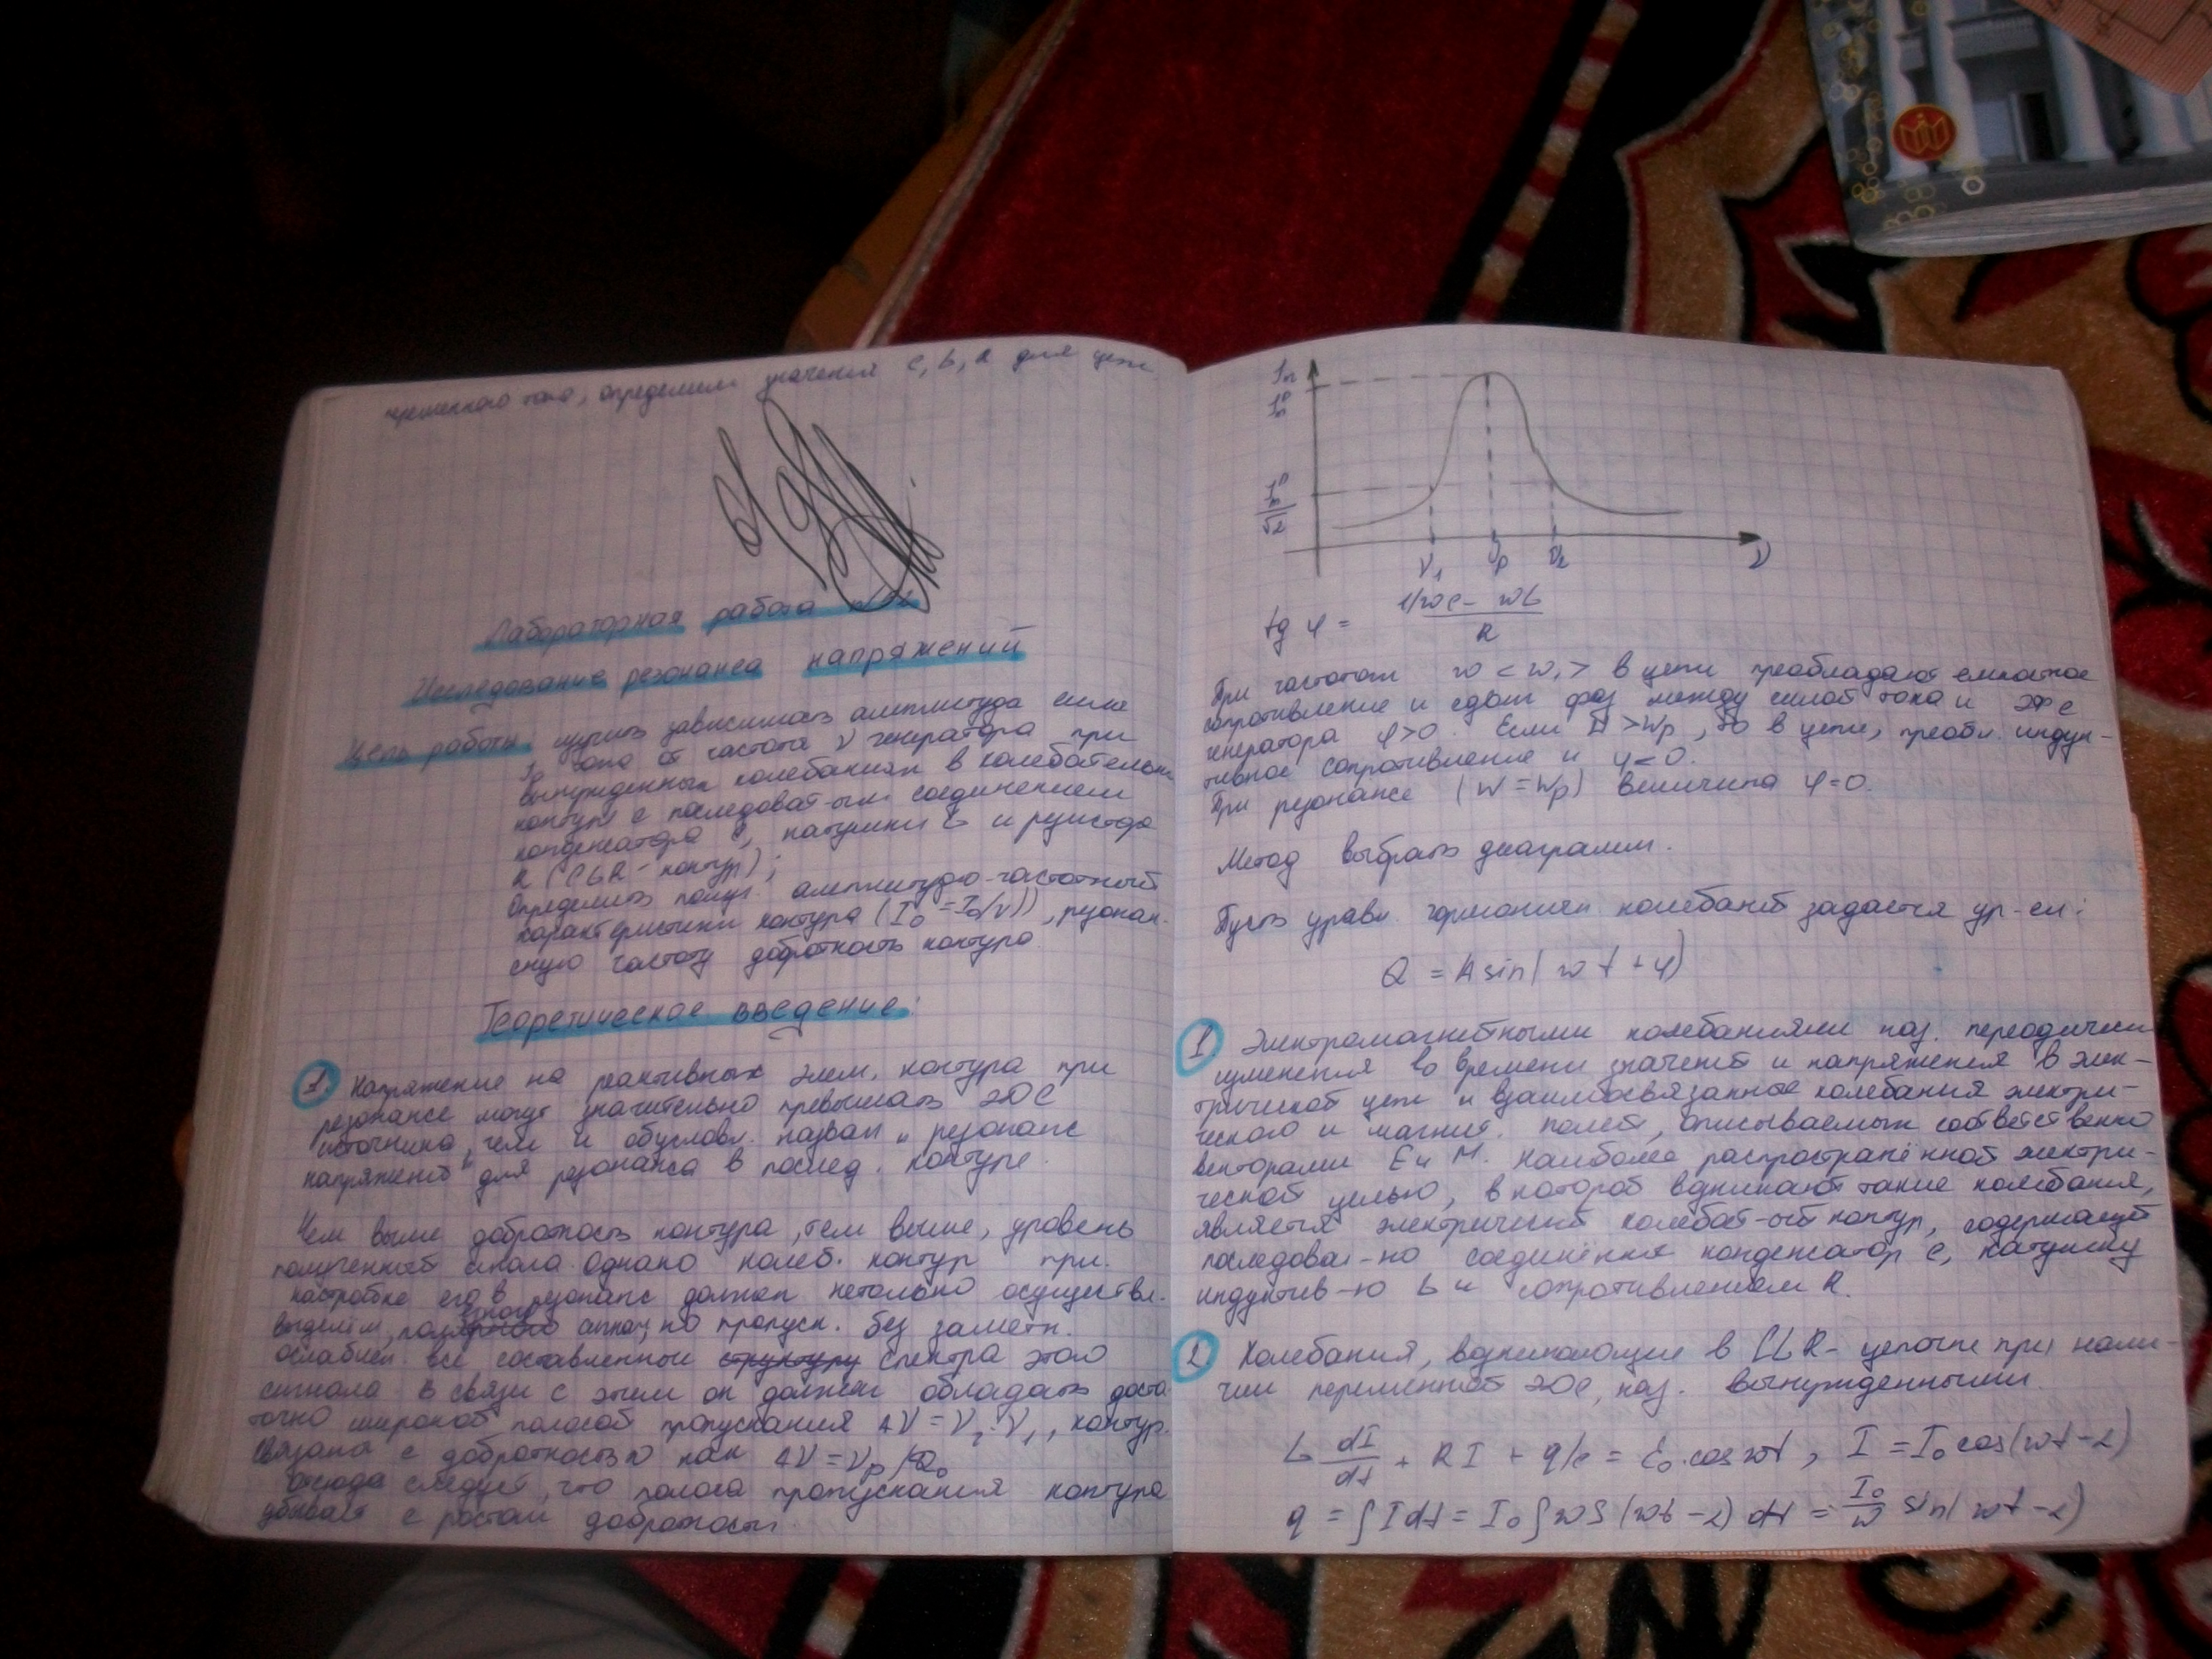 переменного тока, определили значения C, L, R для цепи
Лабораторная работа
Исследование резонанса напряжений
Цель работы: изучить зависимость амплитуда силы
тока от частота ν генератора при
вынужденных колебаниях в колебательн
контуре с последоват-ым соединением
конденсатора C, катушки L и резистора
R (CLR - контур);
Определить амплитудно-частотной
характеристики контура (I₀ = I₀(ν)), резонан-
сную частоту добротность контура
Теоретическое введение:
1. Напряжение на реактивных элем. контура при
резонансе могут значительно превышать ЭДС
источника, чем и обусловл. назван "резонанс
напряжений" для резонанса в послед. контуре.
Чем выше добротность контура, тем выше, уровень
Однако колеб. контур при.
настройке его в резонанс должен нетолько осуществл.
но пропуск. без заметн.
ослаблен. все составленной структуру спектра этого
сигнала в связи с этим он должен обладать доста
точно широкой полосой пропускания ΔV = V₂ - V₁, контур.
связана с добротностью как ΔV = νp/Q₀
Отсюда следует, что полоса пропускания контура
убывает с ростом добротности
Iₙ
Iₙᵖ
Iₙᵖ/√2
ν₁ νp ν₂ ν
tg φ = (1/ωC - ωL)/R
При частотах ω < ω, > в цепи преобладают емкостное
сопротивление и сдвиг фаз между силой тока и ЭДС
генератора φ>0. Если >ωp, то в цепи, преобл. индук-
тивное сопротивление и φ<0.
При резонансе (ω = ωp) величина φ=0.
Метод диаграмм.
Пусть уравн. колебаний задается ур-ем:
Q = A sin(ωt + φ)
1. Электромагнитными колебаниями наз. периодичен
изменения во времени значений и напряжения в элек-
трической цепи и взаимосвязанное колебания электри-
ческого и магнит. полей, описываемых соответственно
векторами E и H. Наиболее распространённой электри-
ческой цепью, в которой возникают такие колебания,
является электрический колебат-ый контур, содержащей
последоват-но соединённых конденсатор C, катушку
индуктив-ю L и сопротивлением R.
2. Колебания, возникающие в CLR- цепочке при нали-
чии переменной ЭДС, наз. вынужденными.
L dI/dt + RI + q/c = ε₀ cos ωt, I = I₀ cos(ωt - 2)
q = ∫ I dt = I₀ ∫ ωS (ωt - 2) dt = I₀/ω sin(ωt - 2)